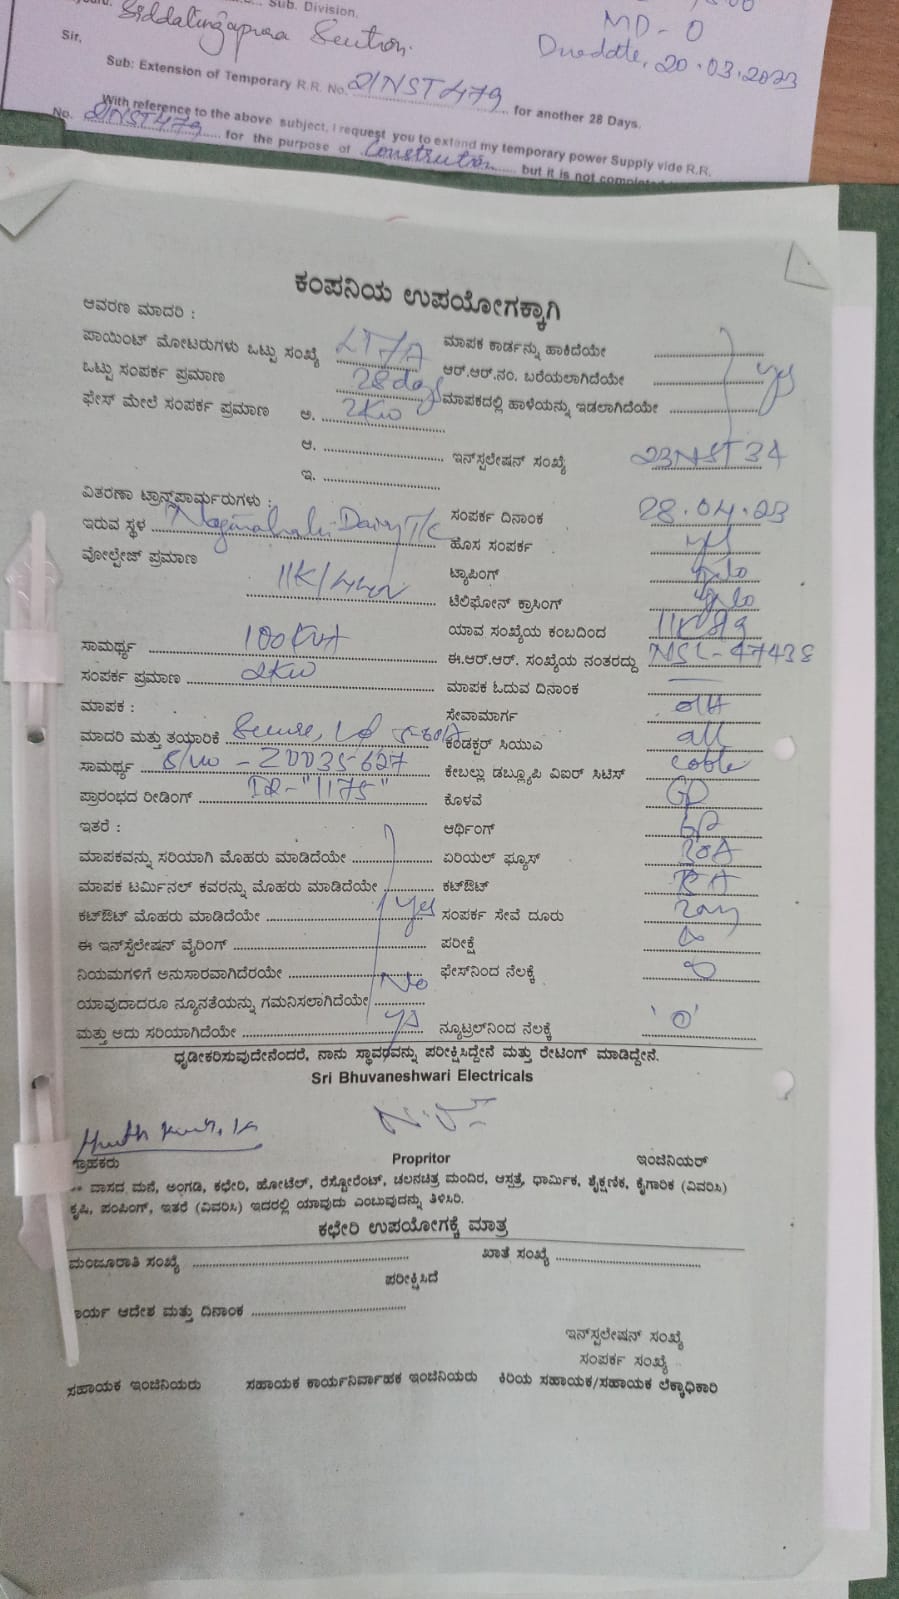 Sub. Division.
Siddalingapura Section.
MD - 0
Duedate, 20.03.2023
Sir,
Sub: Extension of Temporary R.R. No. 21NST479 for another 28 Days.
With reference to the above subject, I request you to extend my temporary power Supply vide R.R.
No. 21NST479 for the purpose of Constrution but it is not
ಕಂಪನಿಯ ಉಪಯೋಗಕ್ಕಾಗಿ
ಆವರಣ ಮಾದರಿ :
ಪಾಯಿಂಟ್ ಮೋಟರುಗಳು ಒಟ್ಟು ಸಂಖ್ಯೆ LT7A ಮಾಪಕ ಕಾರ್ಡನ್ನು ಹಾಕಿದೆಯೇ
ಒಟ್ಟು ಸಂಪರ್ಕ ಪ್ರಮಾಣ 28days ಆರ್.ಆರ್.ನಂ. ಬರೆಯಲಾಗಿದೆಯೇ yes
ಫೇಸ್ ಮೇಲೆ ಸಂಪರ್ಕ ಪ್ರಮಾಣ ಅ. 2KW ಮಾಪಕದಲ್ಲಿ ಹಾಳೆಯನ್ನು ಇಡಲಾಗಿದೆಯೇ
ಆ. ಇನ್‌ಸ್ಟಲೇಷನ್ ಸಂಖ್ಯೆ 23NST34
ಇ.
ವಿತರಣಾ ಟ್ರಾನ್ಸ್‌ಫಾರ್ಮರುಗಳು : ಸಂಪರ್ಕ ದಿನಾಂಕ 28.04.23
ಇರುವ ಸ್ಥಳ Dairy T/C ಹೊಸ ಸಂಪರ್ಕ yes
ವೋಲ್ಟೇಜ್ ಪ್ರಮಾಣ 11K/440V ಟ್ಯಾಪಿಂಗ್
ಟೆಲಿಫೋನ್ ಕ್ರಾಸಿಂಗ್
ಸಾಮರ್ಥ್ಯ 100KVA ಯಾವ ಸಂಖ್ಯೆಯ ಕಂಬದಿಂದ
ಸಂಪರ್ಕ ಪ್ರಮಾಣ 2KW ಈ.ಆರ್.ಆರ್. ಸಂಖ್ಯೆಯ ನಂತರದ್ದು NSL-47438
ಮಾಪಕ : ಮಾಪಕ ಓದುವ ದಿನಾಂಕ
ಸೇವಾಮಾರ್ಗ
ಮಾದರಿ ಮತ್ತು ತಯಾರಿಕೆ Secure, 1Ø 5-60A ಕಂಡಕ್ಟರ್ ಸಿಯುಎ all
ಸಾಮರ್ಥ್ಯ S/no - Z0035-627 ಕೇಬಲ್ಲು ಡಬ್ಲ್ಯೂಪಿ ವಿಐರ್ ಸಿಟಿಸ್ cable
ಪ್ರಾರಂಭದ ರೀಡಿಂಗ್ IR-"1175" ಕೊಳವೆ GP
ಇತರೆ : ಆರ್ಥಿಂಗ್
ಮಾಪಕವನ್ನು ಸರಿಯಾಗಿ ಮೊಹರು ಮಾಡಿದೆಯೇ ಏರಿಯಲ್ ಫ್ಯೂಸ್ 30A
ಮಾಪಕ ಟರ್ಮಿನಲ್ ಕವರನ್ನು ಮೊಹರು ಮಾಡಿದೆಯೇ ಕಟ್‌ಔಟ್
ಕಟ್‌ಔಟ್ ಮೊಹರು ಮಾಡಿದೆಯೇ yes ಸಂಪರ್ಕ ಸೇವೆ ದೂರು
ಈ ಇನ್‌ಸ್ಟೆಲೇಷನ್ ವೈರಿಂಗ್ ಪರೀಕ್ಷೆ ∞
ನಿಯಮಗಳಿಗೆ ಅನುಸಾರವಾಗಿದೆರಯೇ ಫೇಸ್‌ನಿಂದ ನೆಲಕ್ಕೆ ∞
ಯಾವುದಾದರೂ ನ್ಯೂನತೆಯನ್ನು ಗಮನಿಸಲಾಗಿದೆಯೇ No
ಮತ್ತು ಅದು ಸರಿಯಾಗಿದೆಯೇ ನ್ಯೂಟ್ರಲ್‌ನಿಂದ ನೆಲಕ್ಕೆ '0'
ಧೃಡೀಕರಿಸುವುದೇನೆಂದರೆ, ನಾನು ಸ್ಥಾವರವನ್ನು ಪರೀಕ್ಷಿಸಿದ್ದೇನೆ ಮತ್ತು ರೇಟಿಂಗ್ ಮಾಡಿದ್ದೇನೆ.
Sri Bhuvaneshwari Electricals
ಗ್ರಾಹಕರು Propritor ಇಂಜಿನಿಯರ್
** ವಾಸದ ಮನೆ, ಅಂಗಡಿ, ಕಛೇರಿ, ಹೋಟೆಲ್, ರೆಸ್ಟೋರೆಂಟ್, ಚಲನಚಿತ್ರ ಮಂದಿರ, ಆಸ್ಪತ್ರೆ, ಧಾರ್ಮಿಕ, ಶೈಕ್ಷಣಿಕ, ಕೈಗಾರಿಕ (ವಿವರಿಸಿ)
ಕೃಷಿ, ಪಂಪಿಂಗ್, ಇತರೆ (ವಿವರಿಸಿ) ಇದರಲ್ಲಿ ಯಾವುದು ಎಂಬುವುದನ್ನು ತಿಳಿಸಿರಿ.
ಕಛೇರಿ ಉಪಯೋಗಕ್ಕೆ ಮಾತ್ರ
ಮಂಜೂರಾತಿ ಸಂಖ್ಯೆ ಖಾತೆ ಸಂಖ್ಯೆ
ಪರೀಕ್ಷಿಸಿದೆ
ಾರ್ಯ ಆದೇಶ ಮತ್ತು ದಿನಾಂಕ
ಇನ್‌ಸ್ಟಲೇಷನ್ ಸಂಖ್ಯೆ
ಸಂಪರ್ಕ ಸಂಖ್ಯೆ
ಸಹಾಯಕ ಇಂಜಿನಿಯರು ಸಹಾಯಕ ಕಾರ್ಯನಿರ್ವಾಹಕ ಇಂಜಿನಿಯರು ಕಿರಿಯ ಸಹಾಯಕ/ಸಹಾಯಕ ಲೆಕ್ಕಾಧಿಕಾರಿ